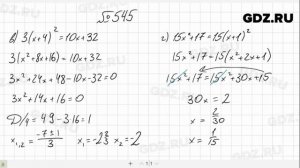 GDZ.RU
№545
в) 3(x+4)² = 10x+32
3(x²+8x+16) = 10x+32
3x²+24x+48-10x-32=0
3x²+14x+16=0
D/4 = 49-3·16 = 1
x₁,₂ = (-7±1)/3 x₁ = -2 x₂ = -2
г) 15x²+17=15(x+1)²
15x²+17=15(x²+2x+1)
15x²+17=15x²+30x+15
30x = 2
x = 2/30
x = 1/15
GDZ.RU